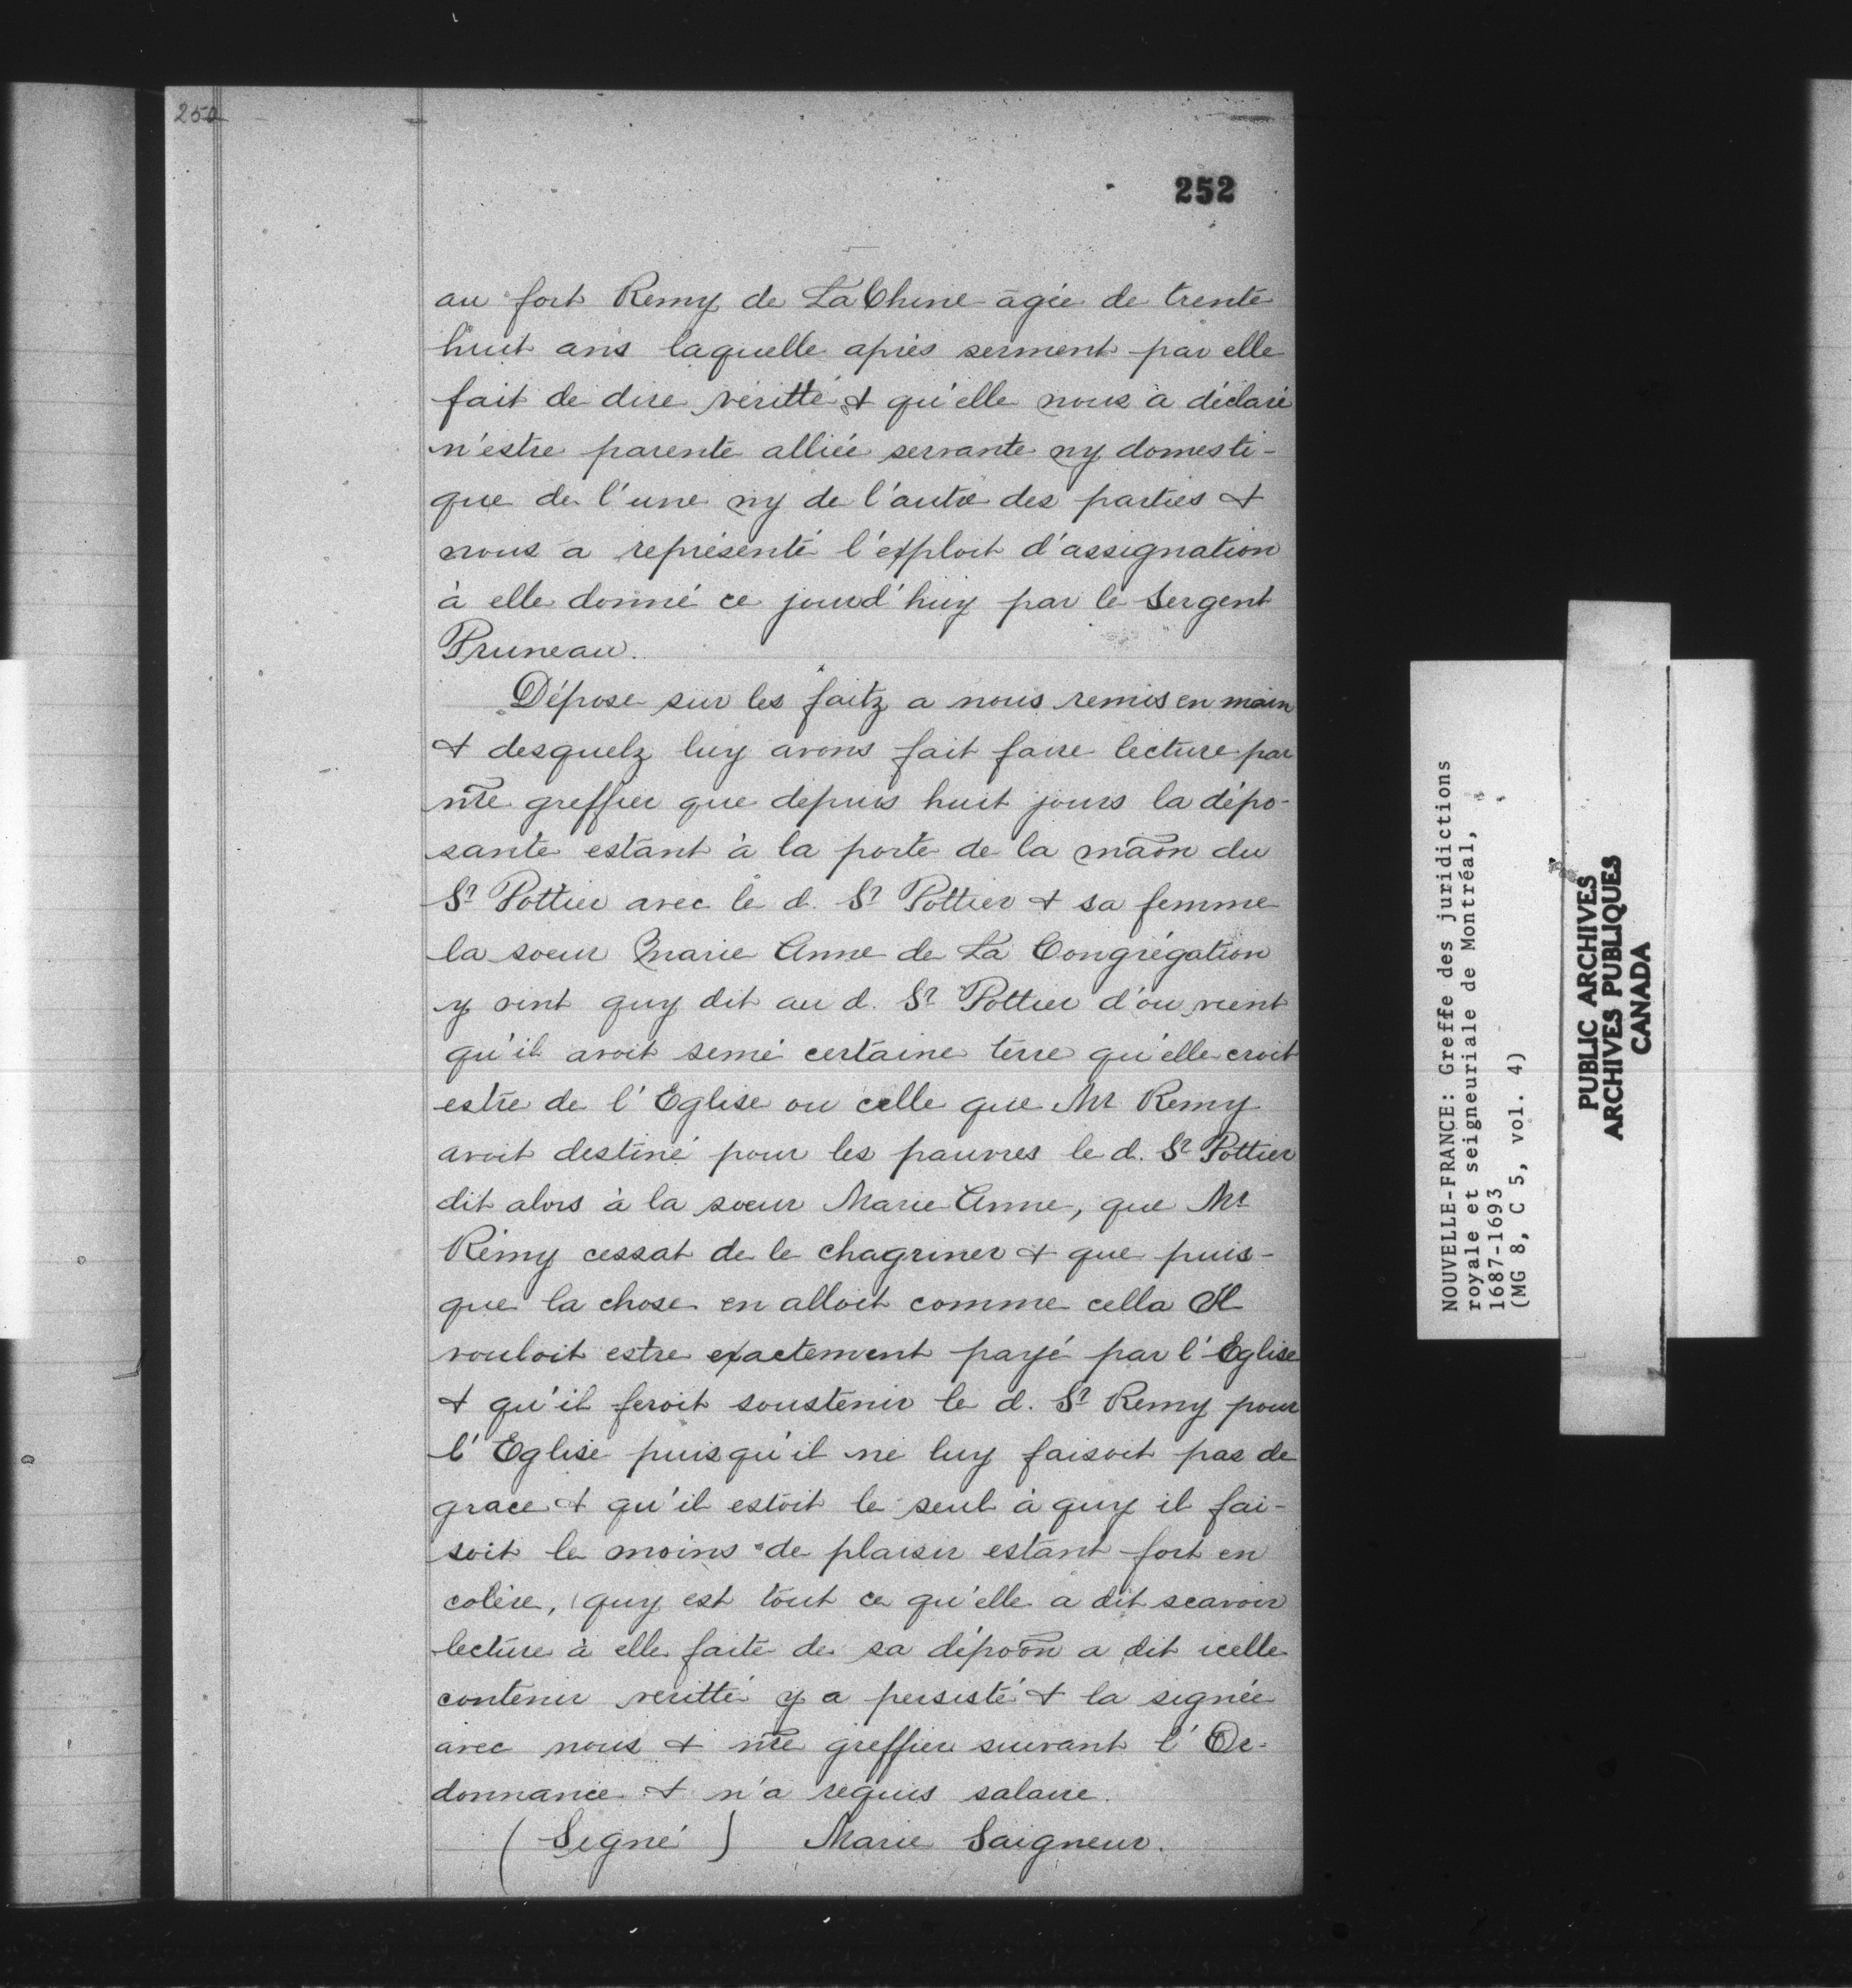 250
252
au fort Remy de La Chine agée de trente
huit ans laquelle après serment par elle
fait de dire véritté & qu'elle nous a déclaré
n'estre parente alliée servante ny domesti-
que de l'une ny de l'autre des parties &
nous a représenté l'exploit d'assignation
à elle donné ce jourd'huy par le Sergent
Pruneau.
Dépose sur les faitz a nous remis en main
& desquelz luy avons fait faire lecture par
nr̃e greffier que depuis huit jours la dépo-
sante estant à la porte de la maõn du
Sr Pottier avec le d. Sr Pottier & sa femme
la soeur Marie Anne de La Congrégation
y vint quy dit au d. Sr Pottier d'ou vient
qu'il avoit semé certaine terre qu'elle croit
estre de l'Eglise ou celle que Mr Remy
avoit destiné pour les pauvres le d. Sr Pottier
dit alors à la soeur Marie Anne, que Mr
Rémy cessat de le chagriner & que puis-
que la chose en alloit comme cella Il
vouloit estre exactement payé par l'Eglise
& qu'il feroit soustenir le d. Sr Remy pour
l'Eglise puisqu'il ne luy faisoit pas de
grace & qu'il estoit le seul à quy il fai-
soit le moins de plaisir estant fort en
colère, quy est tout ce qu'elle a dit scavoir
lecture à elle faite de sa dépoõn a dit icelle
contenir veritté y a persisté & la signée
avec nous & nr̃e greffier suivant l'Or-
donnance & n'a requis salaire.
(Signé) Marie Saigneur.
NOUVELLE-FRANCE: Greffe des juridictions
royale et seigneuriale de Montréal,
1687-1693
(MG 8, C 5, vol. 4)
PUBLIC ARCHIVES
ARCHIVES PUBLIQUES
CANADA